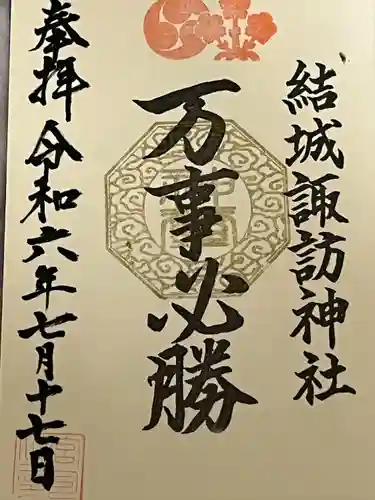 結城諏訪神社
万事必勝
奉拝 令和六年七月十七日